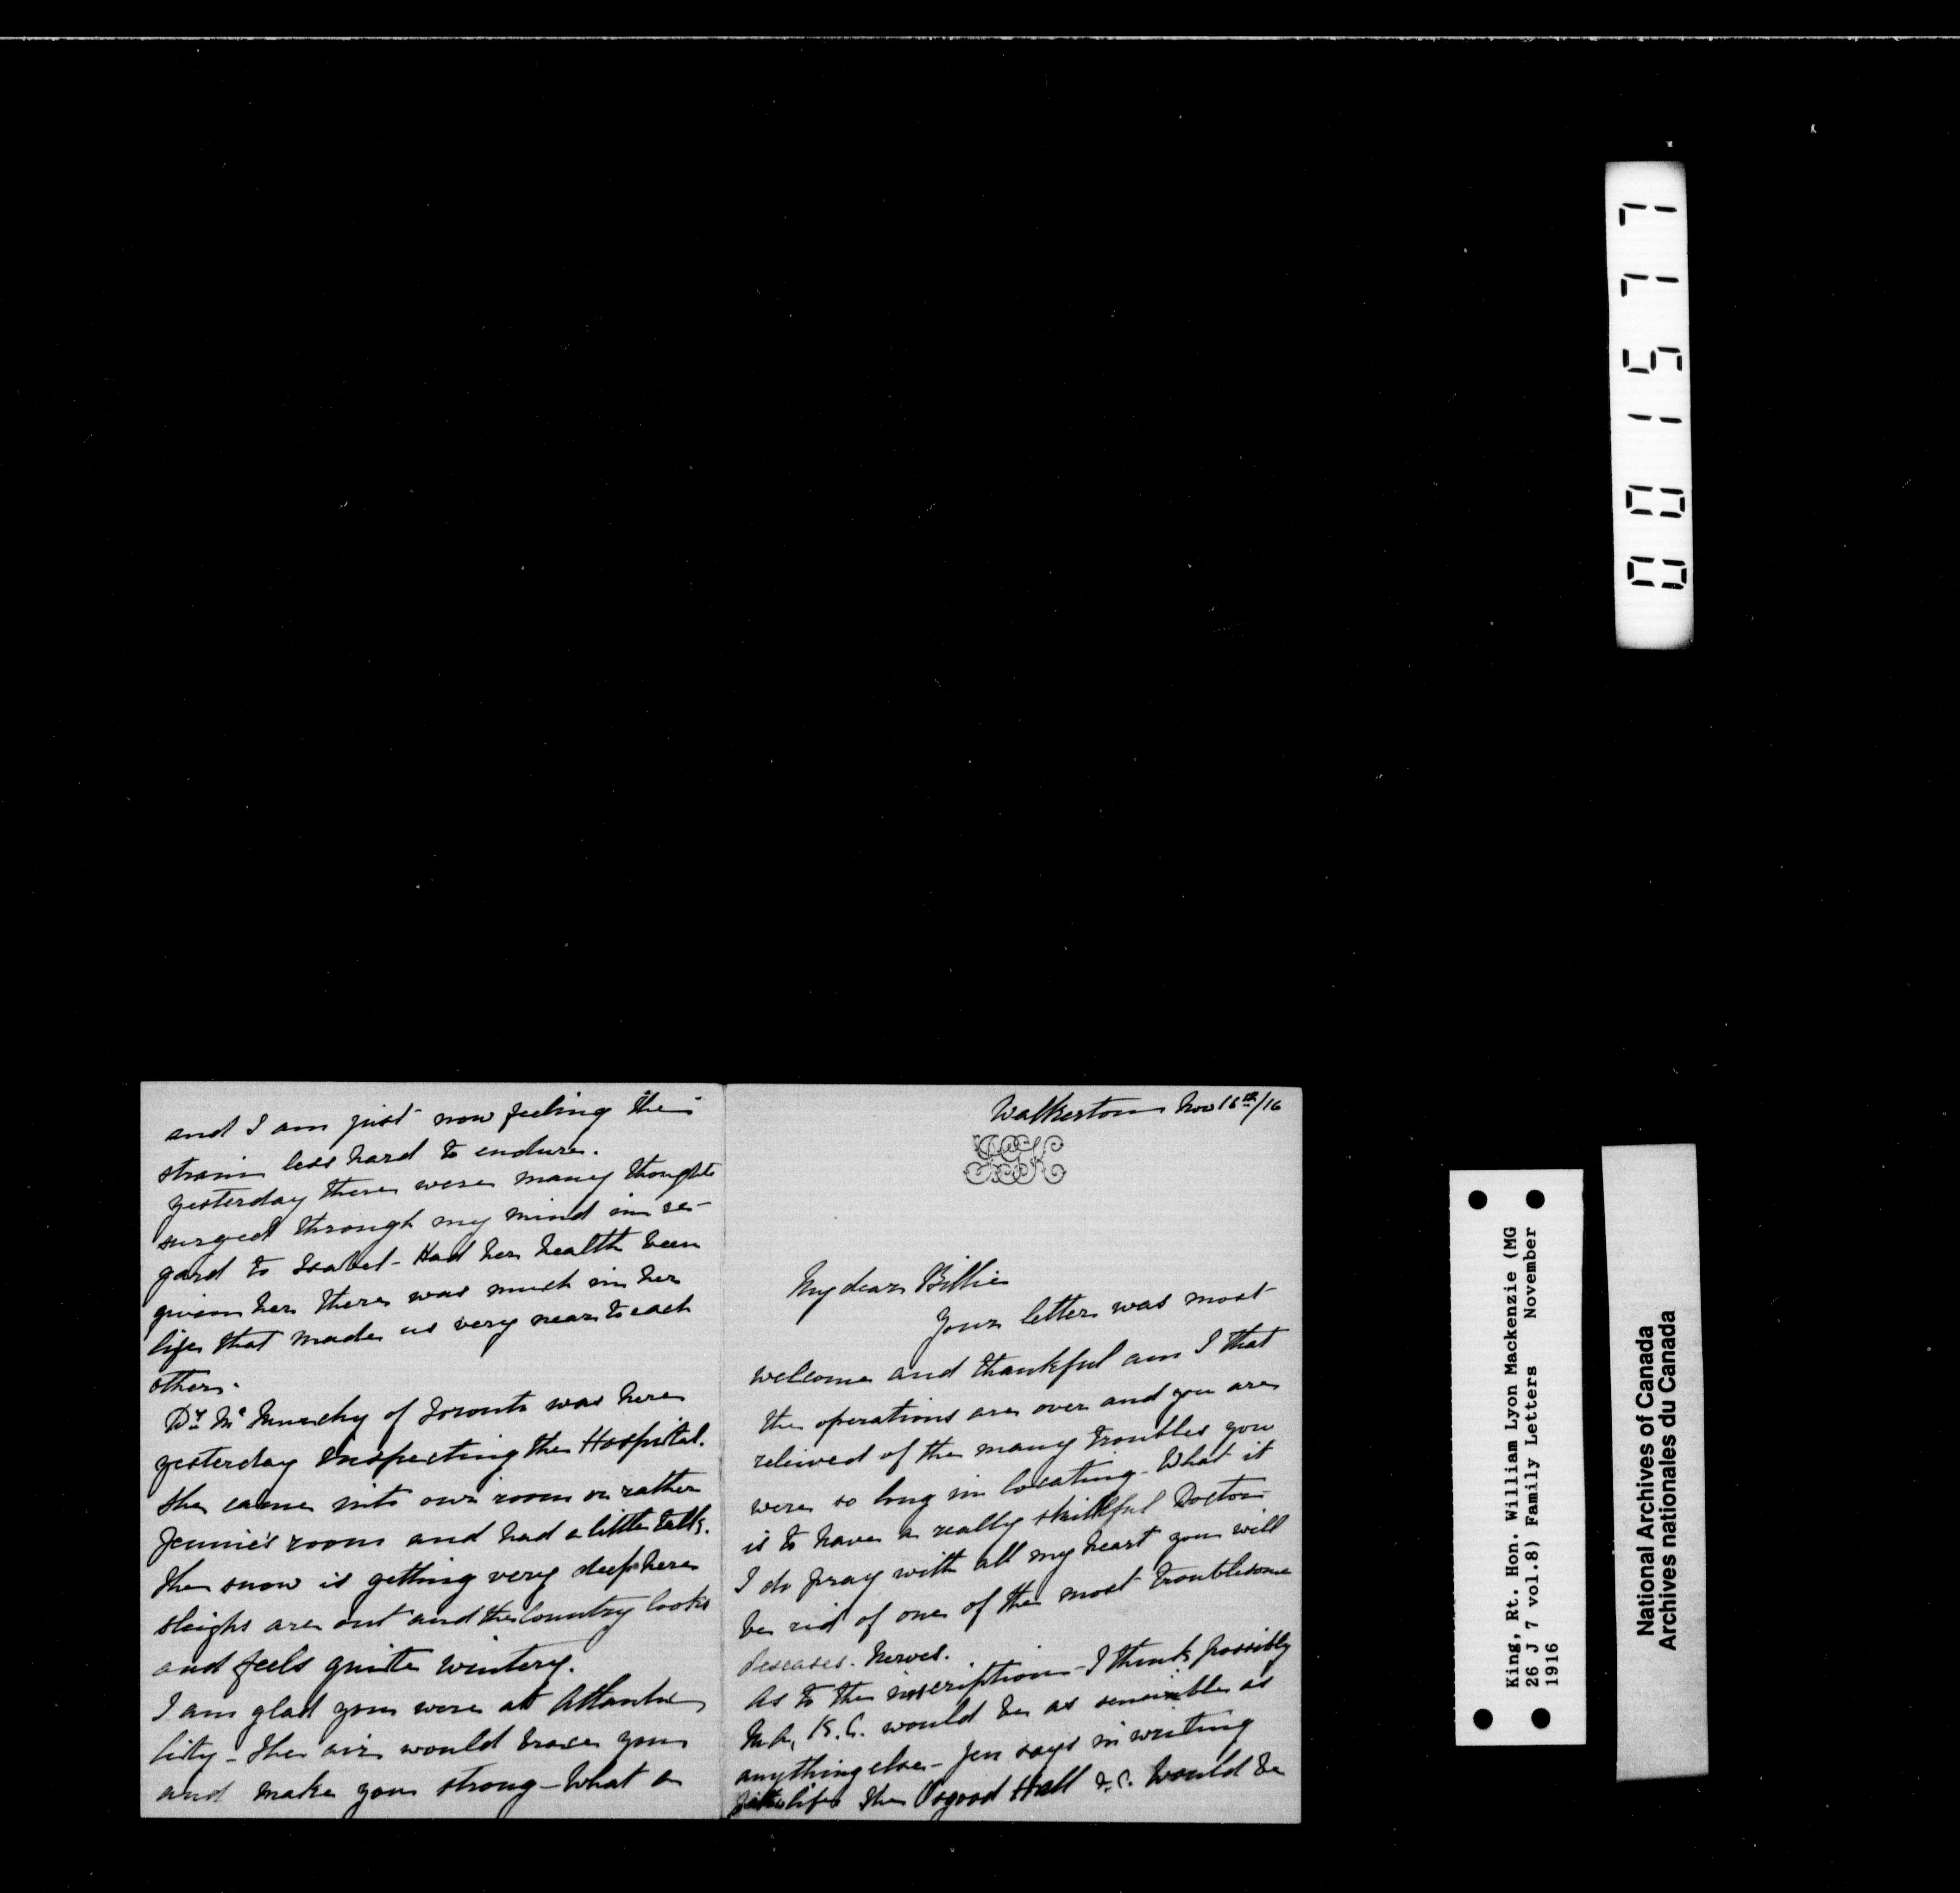 Walkerton Nov 16th/16
My dear Billie
Your letter was most
welcome and thankful am I that
the operations are over and you are
releived of the many troubles you
were so long in locating - What it
is to have a really skillful Doctor
I do pray with all my heart you will
be rid of one of the most troublesome
deseases - nerves.
As to the inscription - I think possibly
M.A, K.C. would be as sensible as
anything else - Jen says in writing
life the Osgood Hall &.c. would be
and I am just now feeling the
strain less hard to endure.
Yesterday there were many thoughts
surged through my mind in re-
gard to Isabel - Had her health been
given her there was much in her
life that made us very near to each
other.
Dr. Mc Murchy of Toronto was here
yesterday Inspecting the Hospital.
She came into our room or rather
Jennie's room and had a little talk.
The snow is getting very deep here
sleighs are out and the Country looks
and feels quite wintery.
I am glad you were at Atlantic
City - The air would brace you
and make you strong - What a
001577
King, Rt. Hon. William Lyon Mackenzie (MG
26 J 7 vol.8) Family Letters November
1916
National Archives of Canada
Archives nationales du Canada